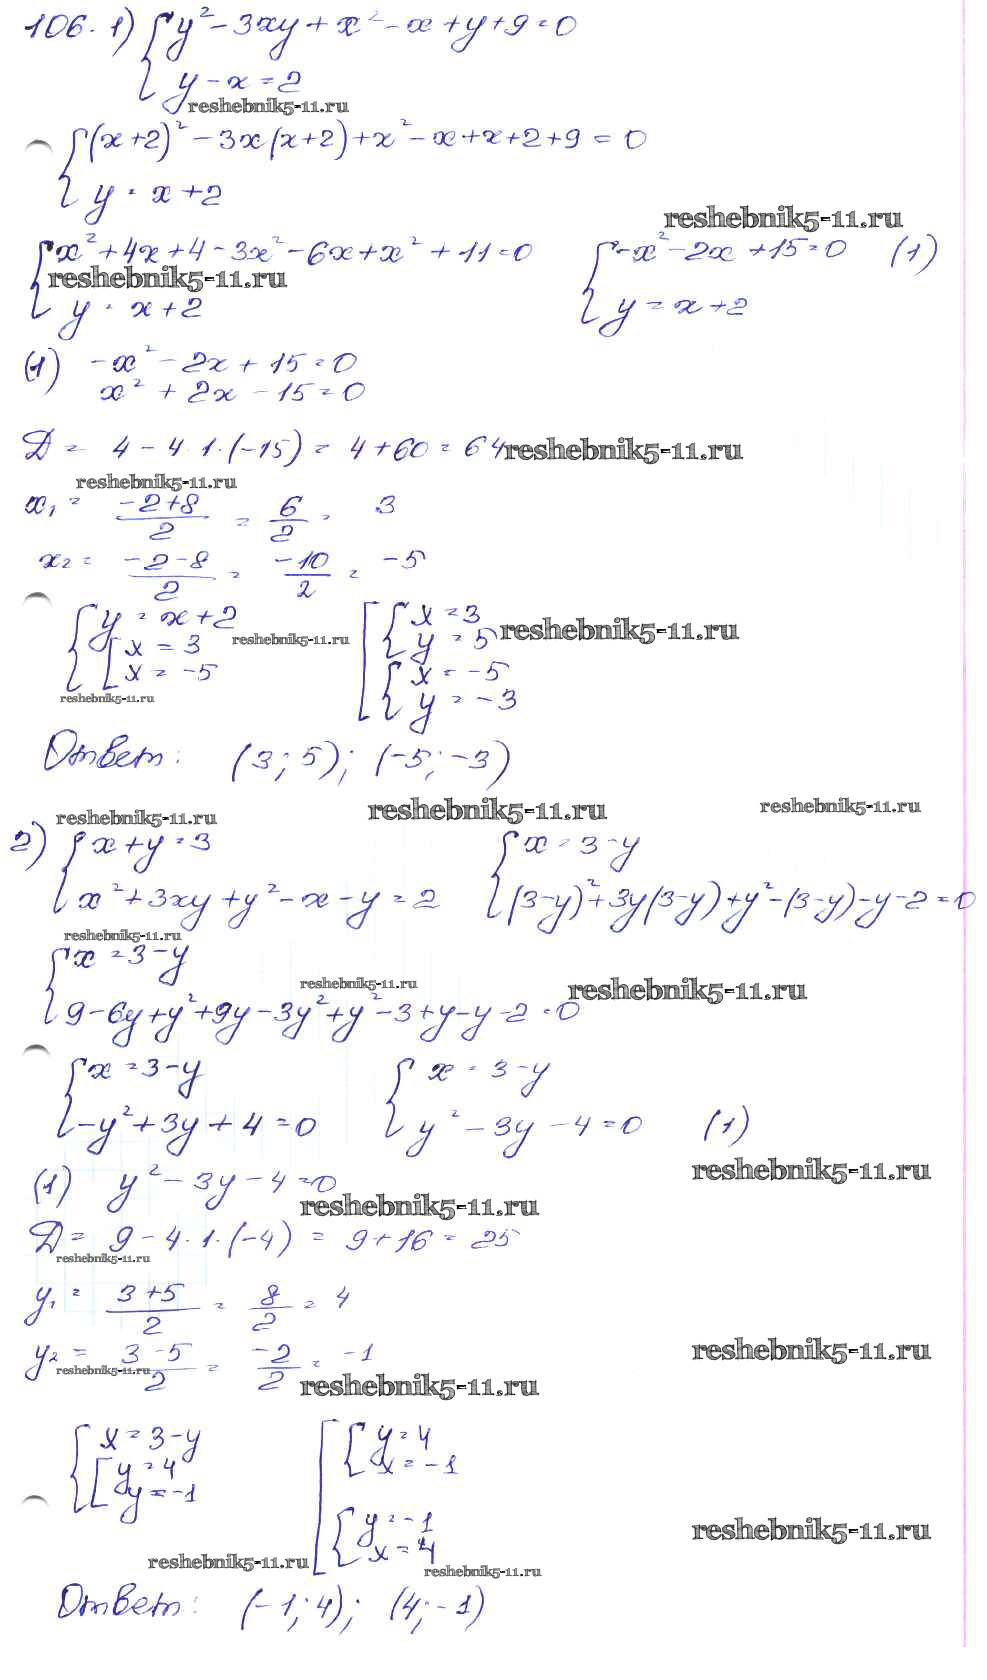 106. 1) { y² - 3xy + x² - x + y + 9 = 0
y - x = 2
reshebnik5-11.ru
{ (x+2)² - 3x(x+2) + x² - x + x + 2 + 9 = 0
y = x + 2
reshebnik5-11.ru
{ x² + 4x + 4 - 3x² - 6x + x² + 11 = 0 { -x² - 2x + 15 = 0 (1)
reshebnik5-11.ru
y = x + 2 y = x + 2
(1) -x² - 2x + 15 = 0
x² + 2x - 15 = 0
D = 4 - 4·1·(-15) = 4 + 60 = 64 reshebnik5-11.ru
reshebnik5-11.ru
x₁ = (-2+8)/2 = 6/2 = 3
x₂ = (-2-8)/2 = -10/2 = -5
{ y = x + 2 [ { x = 3
[ x = 3 reshebnik5-11.ru y = 5 reshebnik5-11.ru
x = -5 { x = -5
reshebnik5-11.ru y = -3
Ответ: (3; 5); (-5; -3)
reshebnik5-11.ru reshebnik5-11.ru reshebnik5-11.ru
2) { x + y = 3 { x = 3 - y
x² + 3xy + y² - x - y = 2 (3-y)² + 3y(3-y) + y² - (3-y) - y - 2 = 0
reshebnik5-11.ru
{ x = 3 - y
reshebnik5-11.ru reshebnik5-11.ru
9 - 6y + y² + 9y - 3y² + y² - 3 + y - y - 2 = 0
{ x = 3 - y { x = 3 - y
-y² + 3y + 4 = 0 y² - 3y - 4 = 0 (1)
reshebnik5-11.ru
(1) y² - 3y - 4 = 0
reshebnik5-11.ru
D = 9 - 4·1·(-4) = 9 + 16 = 25
reshebnik5-11.ru
y₁ = (3+5)/2 = 8/2 = 4
y₂ = (3-5)/2 = -2/2 = -1 reshebnik5-11.ru
reshebnik5-11.ru reshebnik5-11.ru
{ x = 3 - y [ { y = 4
[ y = 4 x = -1
y = -1
{ y = -1 reshebnik5-11.ru
x = 4
reshebnik5-11.ru reshebnik5-11.ru
Ответ: (-1; 4); (4; -1)